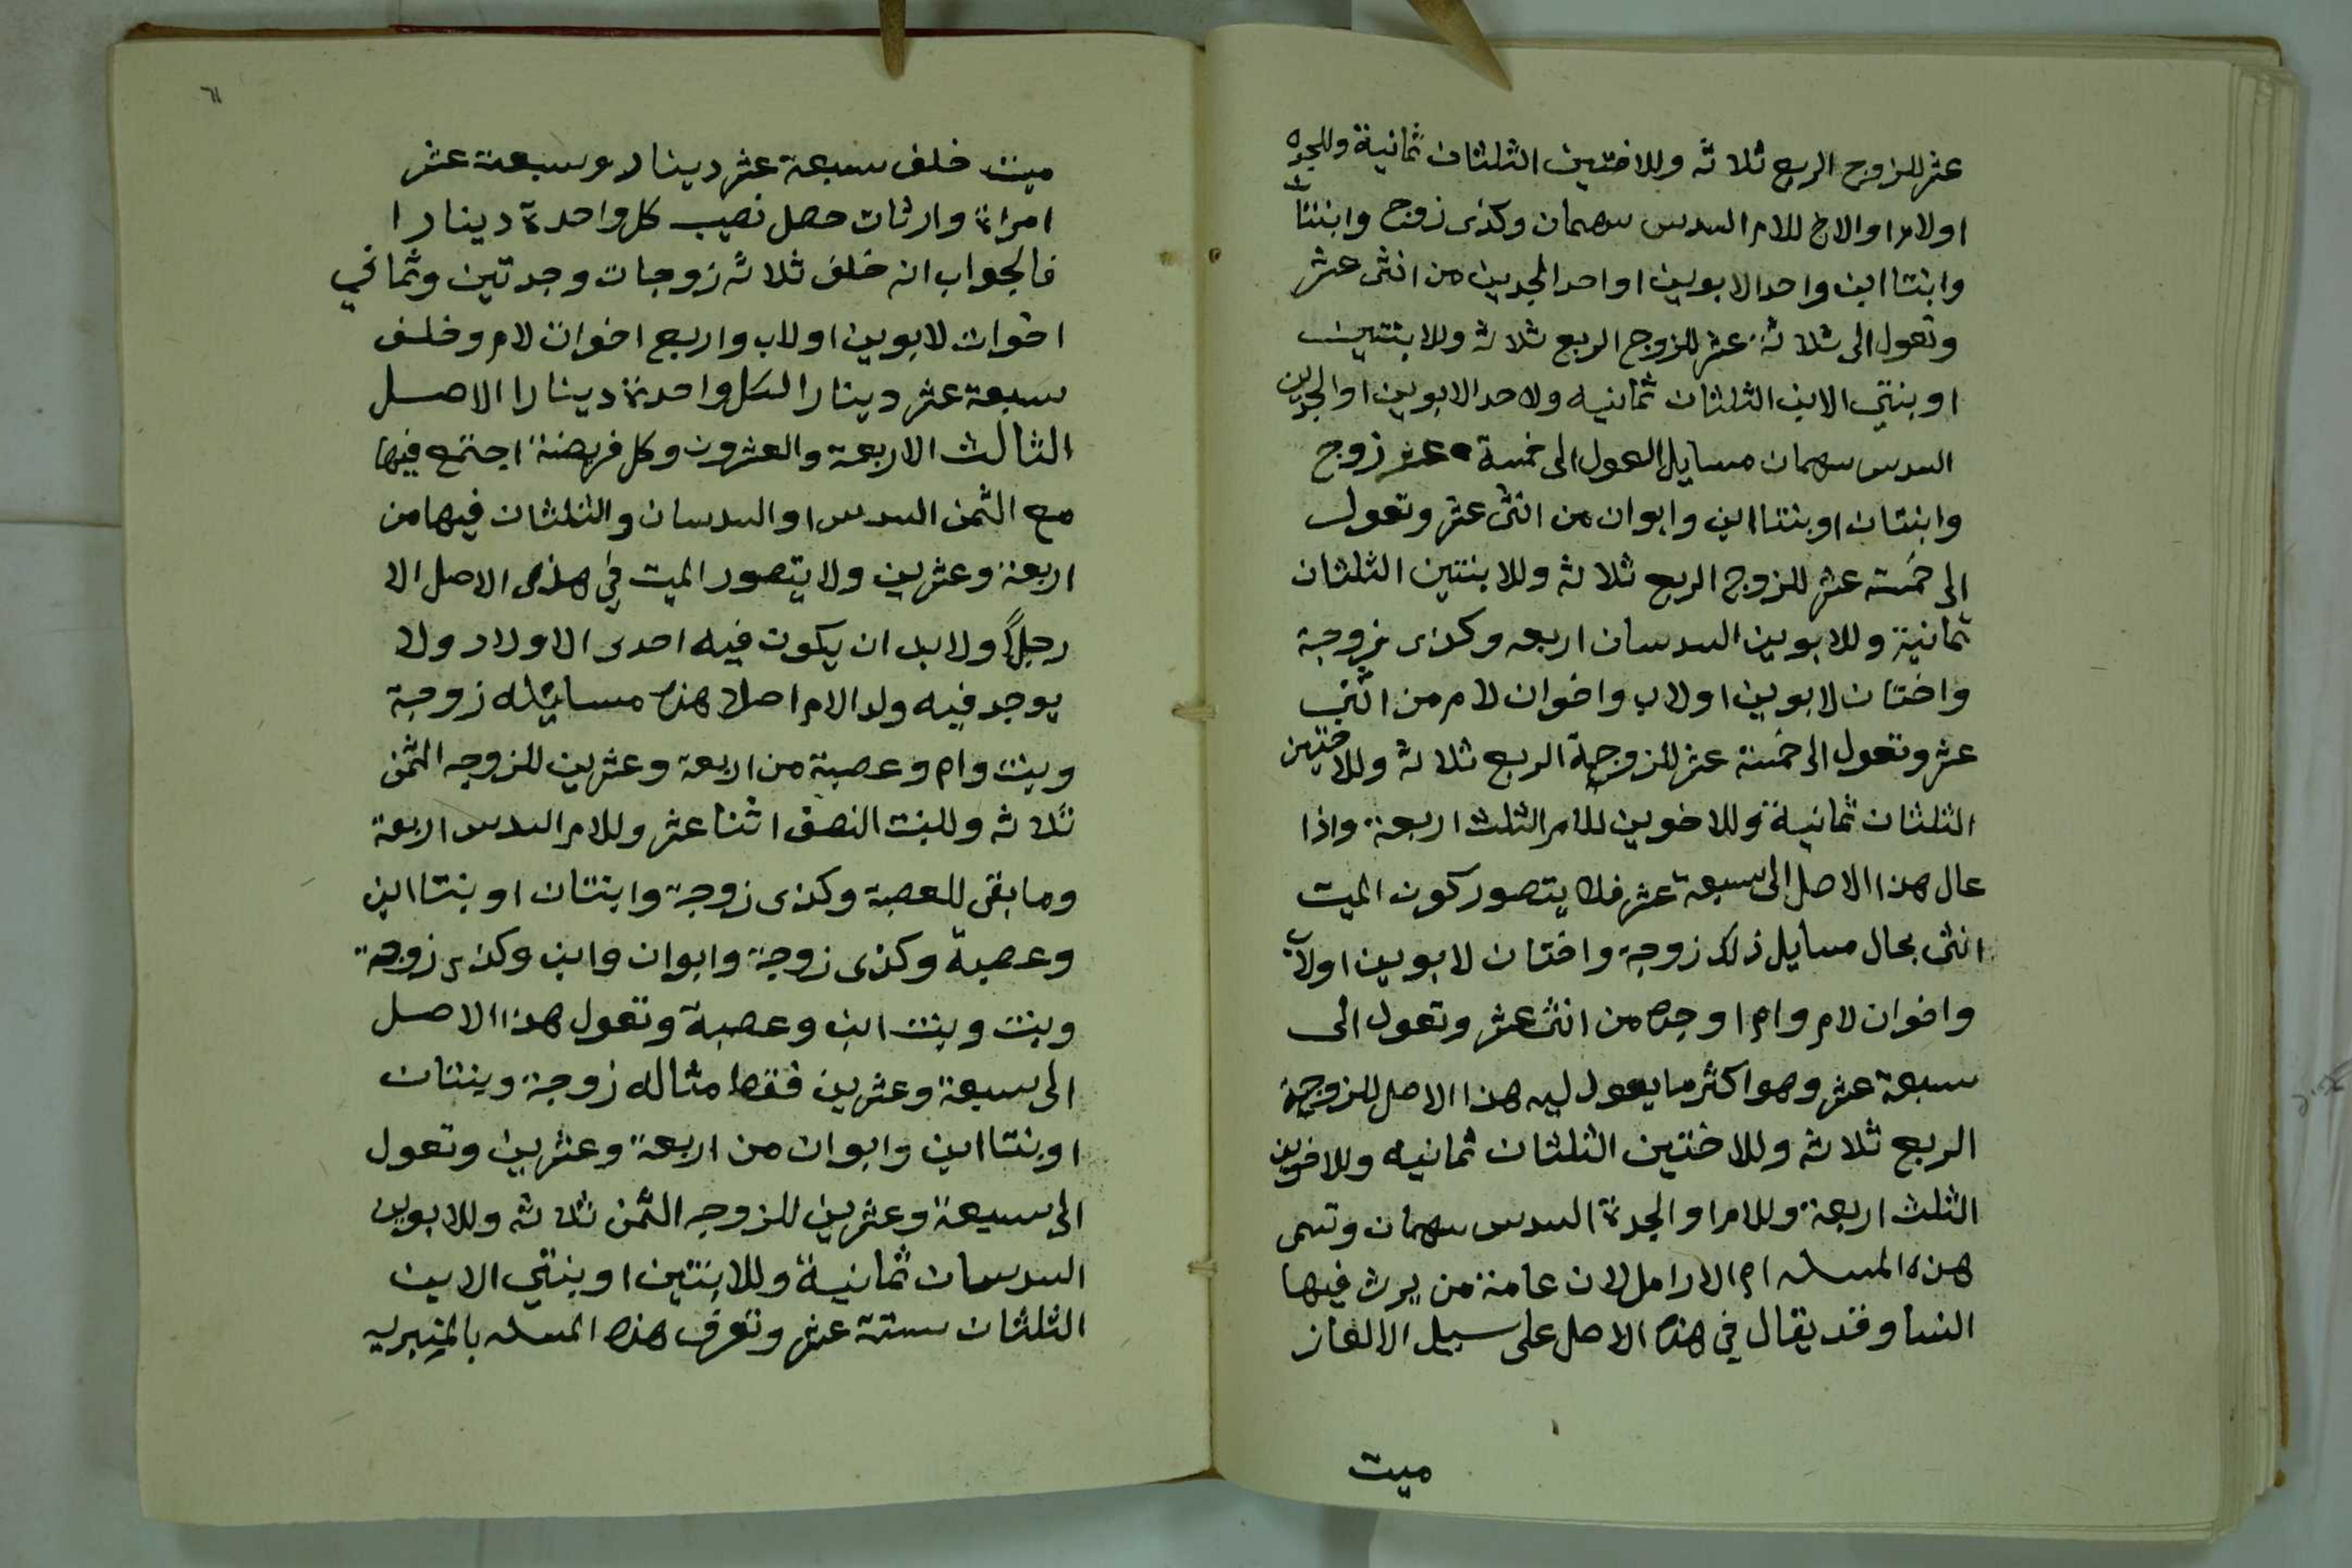 عشر للزوج الربع ثلاثه وللاختين الثلثان ثمانية وللجده
اولام او الاخ للام السدس سهمان وكذى زوج وابنتان
وابنتا ابن واحد الابوين او احد الجدين من اثنى عشر
وتعول الى ثلاثة عشر للزوج الربع ثلاثه وللابنتين
او بنتي الابن الثلثان ثمانيه ولاحد الابوين او الجدين
السدس سهمان مسايل العول الى خمسة عشر زوج
وابنتان او بنتا ابن وابوان من اثنى عشر وتعول
الى خمسة عشر للزوج الربع ثلاثه وللابنتين الثلثان
ثمانية وللابوين السدسان اربعه وكذى زوجة
واختان لابوين اولاب واخوان لام من اثني
عشر وتعول الى خمسة عشر للزوجة الربع ثلاثه وللاختين
الثلثان ثمانية وللاخوين للام الثلث اربعة واذا
عال هذا الاصل الى سبعة عشر فلا يتصور كون الميت
انثى بحال مسايل ذلك زوجة واختان لابوين اولاب
واخوان لام وام او جده من اثنى عشر وتعول الى
سبعة عشر وهو اكثر ما يعول ليه هذا الاصل للزوجة
الربع ثلاثه وللاختين الثلثان ثمانيه وللاخوين
الثلث اربعة وللام او الجدة السدس سهمان وتسمى
هذه المسله ام الارامل لان عامة من يرث فيها
النسا وقد يقال في هذه الاصل على سبيل الالغاز
ميت
٦
ميت خلف سبعة عشر دينار وسبعة عشر
امراة وارثات حصل نصيب كل واحدة دينارا
فالجواب انه خلف ثلاثه زوجات وجدتين وثماني
اخوات لابوين اولاب واربع اخوات لام وخلف
سبعة عشر دينارا لكل واحدة دينارا الاصل
الثالث الاربعة والعشرون وكل فريضة اجتمع فيها
مع الثمن السدس او السدسان والثلثان فيها من
اربعة وعشرين ولا يتصور الميت في هذى الاصل الا
رجلاً ولابد ان يكون فيه احدى الاولاد ولا
يوجد فيه ولد الام اصلا هذه مسائله زوجة
وبنت وام وعصبة من اربعة وعشرين للزوجه الثمن
ثلاثه وللبنت النصف اثنا عشر وللام السدس اربعة
وما بقى للعصبة وكذى زوجة وابنتان او بنتا ابن
وعصبة وكذى زوجة وابوان وابن وكذى زوجة
وبنت وبنت ابن وعصبة وتعول هذا الاصل
الى سبعة وعشرين فقط مثاله زوجة وبنتان
او بنتا ابن وابوان من اربعة وعشرين وتعول
الى سبعة وعشرين للزوجه الثمن ثلاثه وللابوين
السدسان ثمانية وللابنتين او بنتي الابن
الثلثان ستة عشر وتعرف هذه المسله بالمنبريه